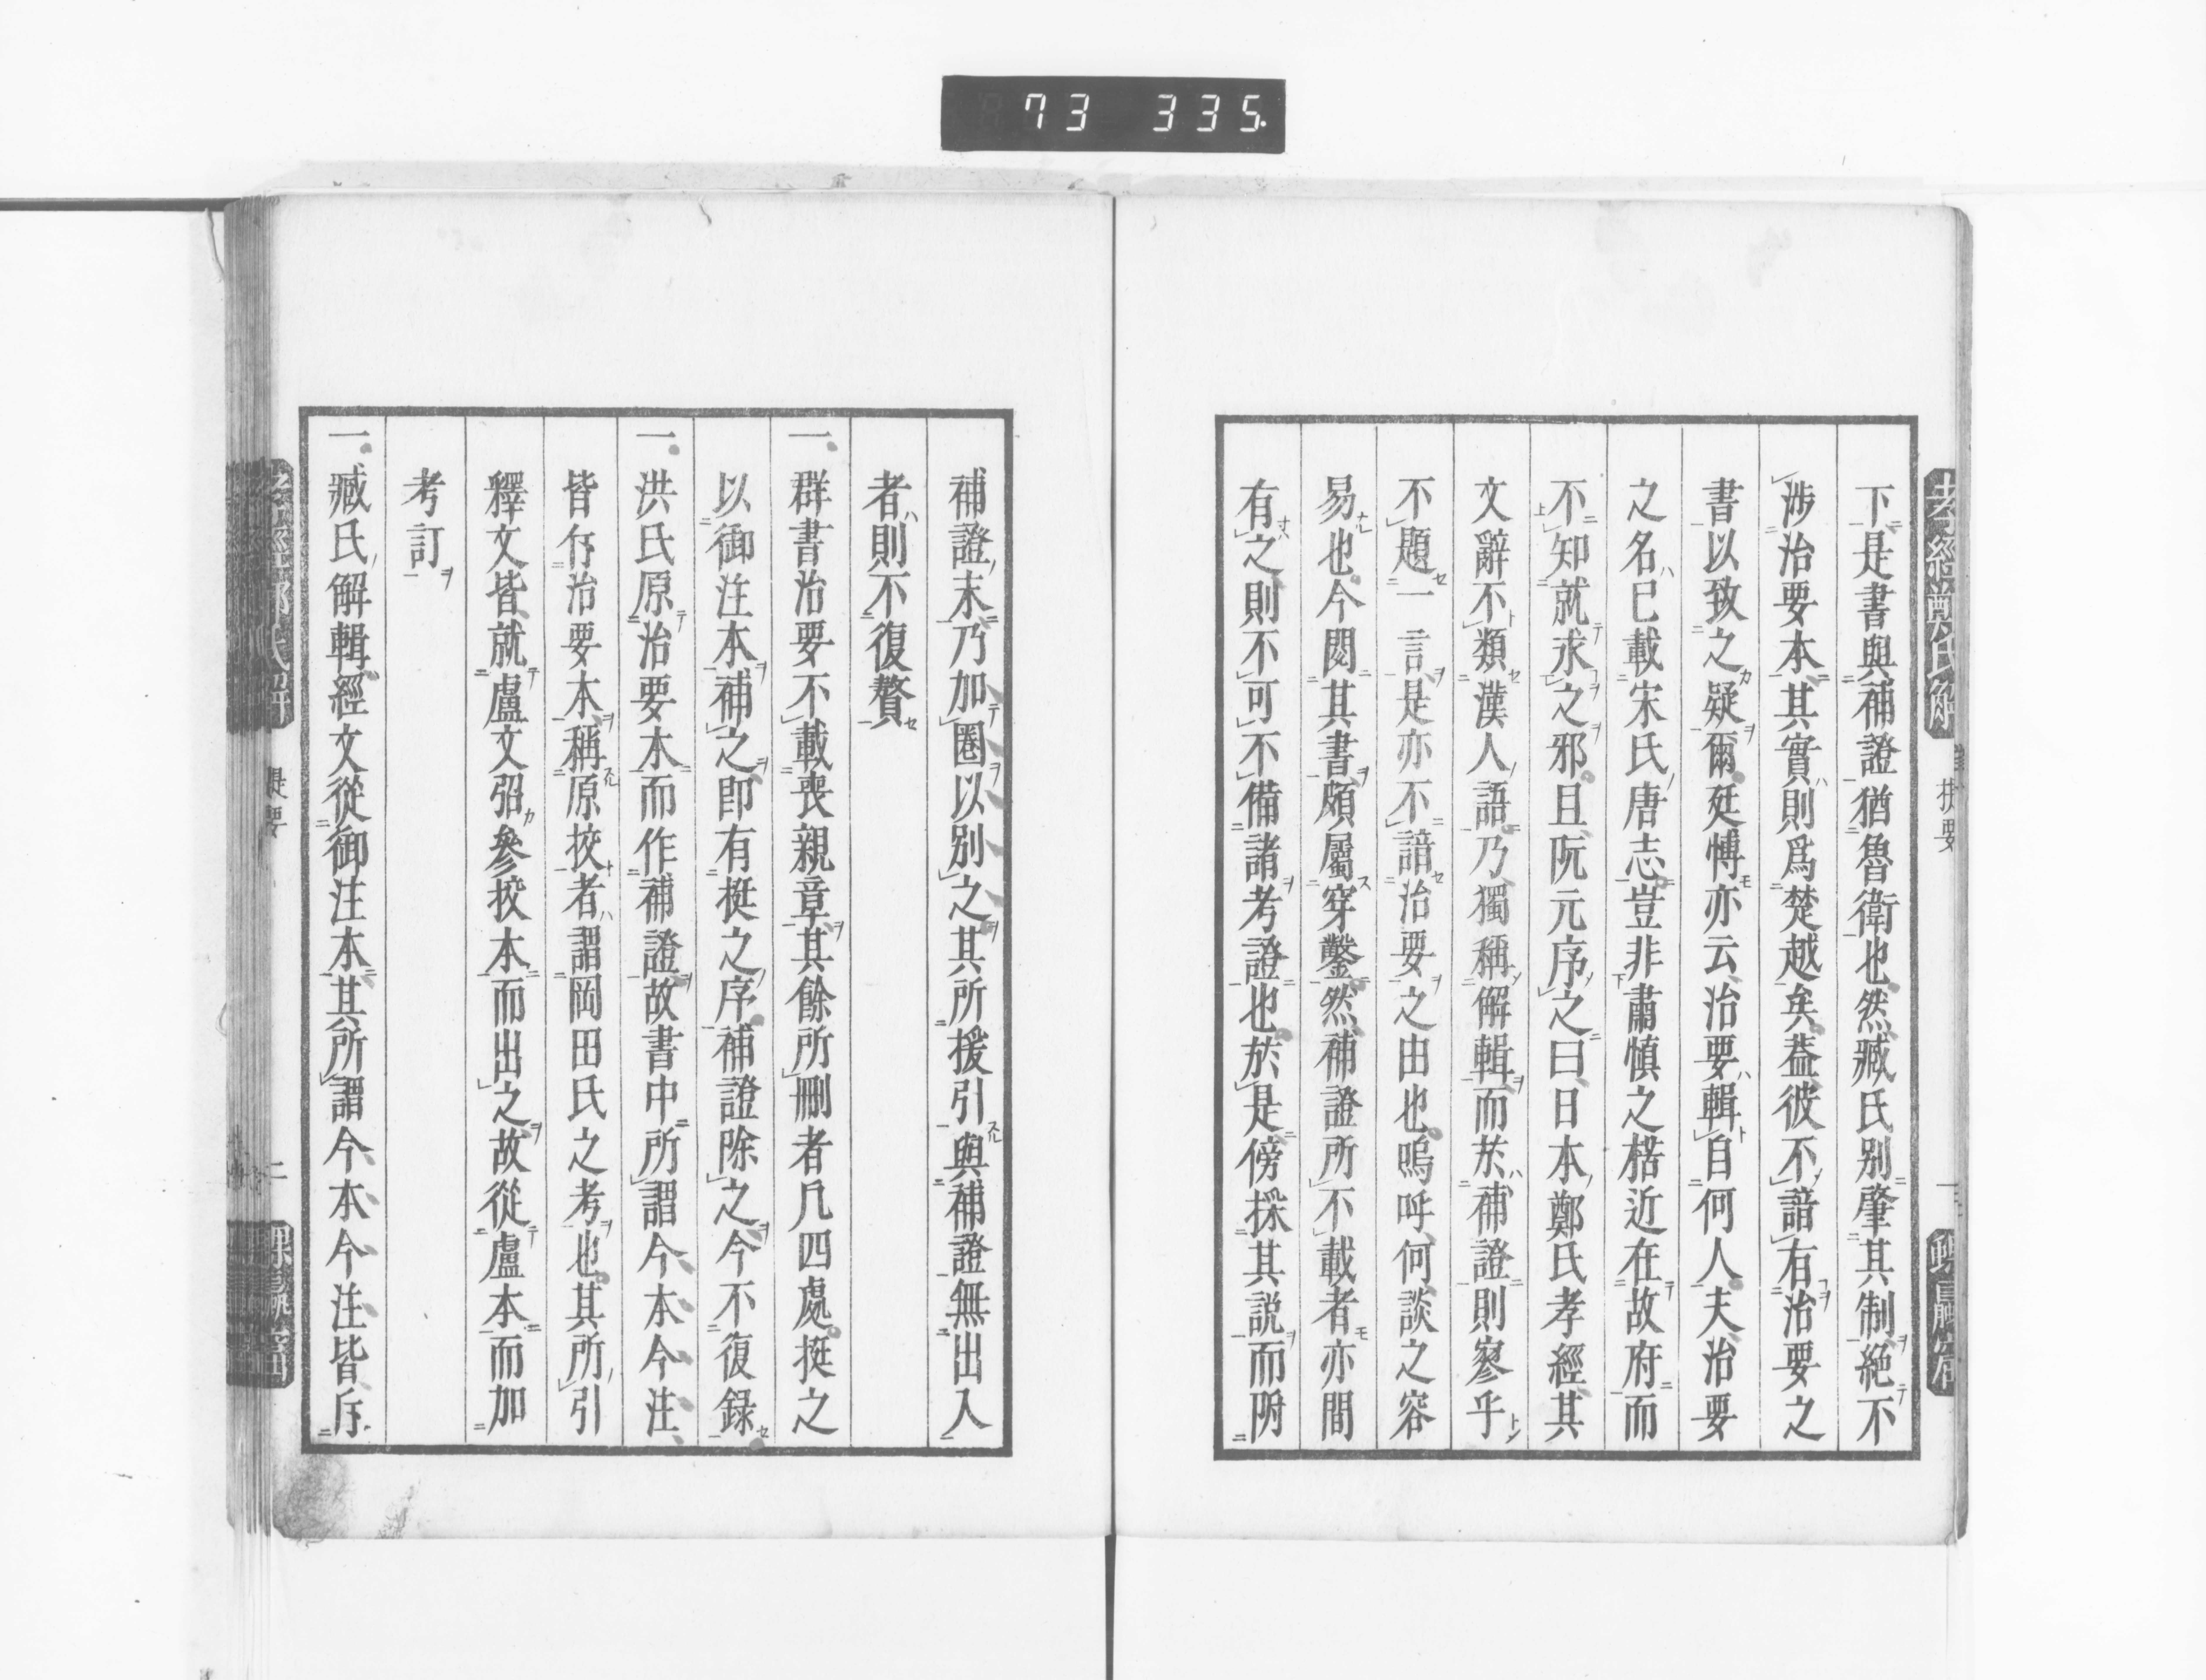 73 335.
下是書與補證猶魯衛也然臧氏別肇其制絶不
涉治要本其實則爲楚越矣葢彼不諳有治要之
書以致之疑爾廷博亦云治要輯自何人夫治要
之名已載宋氏唐志豈非肅慎之楛近在故府而
不知就求之邪且阮元序之曰日本鄭氏孝經其
文辭不類漢人語乃獨稱解輯而於補證則寥乎
不題一言是亦不諳治要之由也嗚呼何談之容
易也今閲其書頗屬穿鑿然補證所不載者亦間
有之則不可不備諸考證也於是傍採其説而附
補證末乃加圈以別之其所援引與補證無出入
者則不復贅
一群書治要不載喪親章其餘所刪者凡四處挺之
以御注本補之即有挺之序補證除之今不復録
一洪氏原治要本而作補證故書中所謂今本今注
皆斥治要本稱原挍者謂岡田氏之考也其所引
釋文皆就盧文弨參挍本而出之故從盧本而加
考訂
一臧氏解輯經文從御注本其所謂今本今注皆斥
孝經鄭氏解
提要
二